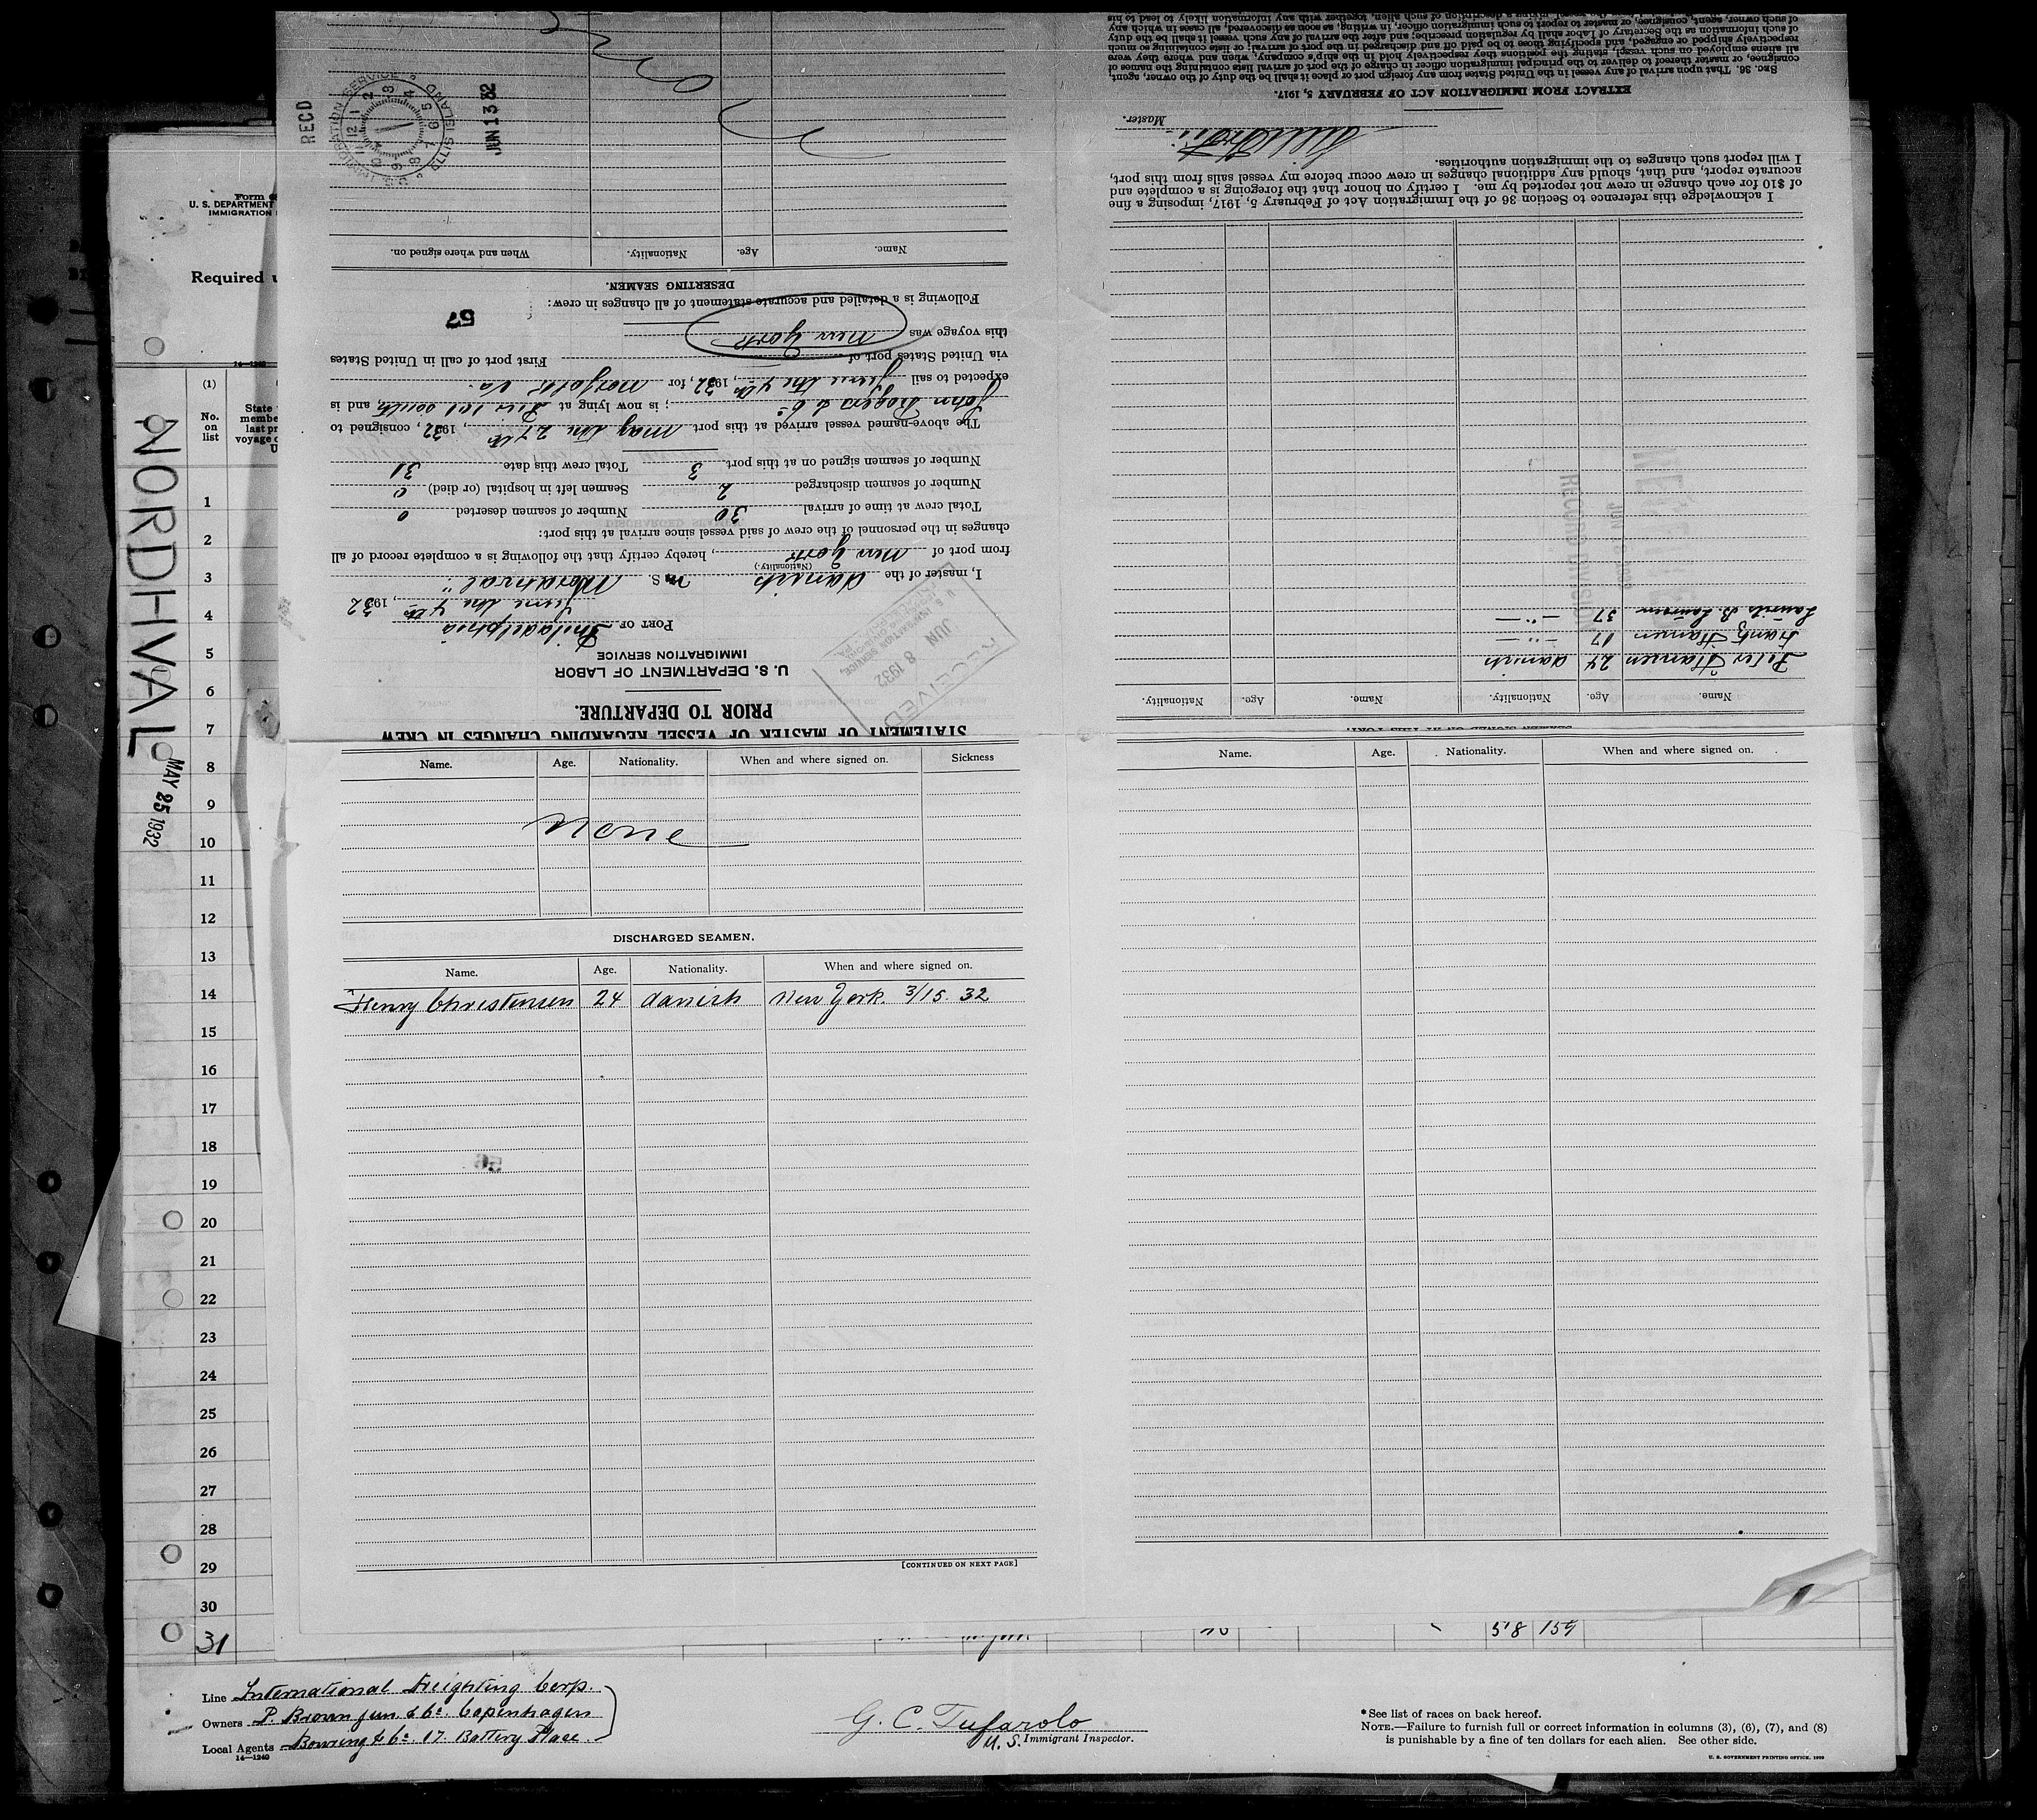 NORDHVAL
MAY 25 1932
Form 68
U. S. DEPARTMENT
IMMIGRATION
Required
14—1240
(1)
No.
on
list
State
membe
last pr
voyage
U
1
2
3
4
5
6
7
8
9
10
11
12
13
14
15
16
17
18
19
20
21
22
23
24
25
26
27
28
29
30
31
STATEMENT OF MASTER OF VESSEL REGARDING CHANGES IN CREW
PRIOR TO DEPARTURE.
U. S. DEPARTMENT OF LABOR
IMMIGRATION SERVICE
RECEIVED
JUN 8 1932
PORT OF Philadelphia
June the 4th, 1932
I, master of the danish M. S. "Nordhval"
(Nationality.)
from port of New York, hereby certify that the following is a complete record of all
changes in the personnel of the crew of said vessel since arrival at this port:
Total crew at time of arrival 30 Number of seamen deserted 0
Number of seamen discharged 2 Seamen left in hospital (or died) 0
Number of seamen signed on at this port. 3 Total crew this date 31
The above-named vessel arrived at this port May the 27th, 1932, consigned to
John Rogers & Co; is now lying at Pier 101 South, and is
expected to sail June the 4th, 1932, for Norfolk Va.
via United States port of First port of call in United States
this voyage was New York
57
Following is a detailed and accurate statement of all changes in crew:
DESERTING SEAMEN.
Name. Age. Nationality. When and where signed on.
RECD
U.S. IMMIGRATION SERVICE
ELLIS ISLAND
JUN 13 32
Name. Age. Nationality. Name. Age. Nationality.
Peter Hansen 24 danish
Frantz Hansen 17 -"-
Laurits B. Laursen 37 -"-
RECORD DIVISION
I acknowledge this reference to Section 36 of the Immigration Act of February 5, 1917, imposing a fine
of $10 for each change in crew not reported by me. I certify on honor that the foregoing is a complete and
accurate report, and that, should any additional changes in crew occur before my vessel sails from this port,
I will report such changes to the immigration authorities.
Master.
EXTRACT FROM IMMIGRATION ACT OF FEBRUARY 5, 1917.
SEC. 36. That upon arrival of any vessel in the United States from any foreign port or place it shall be the duty of the owner, agent,
consignee, or master thereof to deliver to the principal immigration officer in charge of the port of arrival lists containing the names of
all aliens employed on such vessel, stating the positions they respectively hold in the ship's company, when and where they were
respectively shipped or engaged, and specifying those to be paid off and discharged in the port of arrival; or lists containing so much
of such information as the Secretary of Labor shall by regulation prescribe; and after the arrival of any such vessel it shall be the duty
of such owner, agent, consignee, or master to report to such immigration officer, in writing, as soon as discovered, all cases in which any
Name. Age. Nationality. When and where signed on. Sickness
None
DISCHARGED SEAMEN.
Name. Age. Nationality. When and where signed on.
Henry Christensen 24 danish New York. 3/15. 32
[CONTINUED ON NEXT PAGE]
Name. Age. Nationality. When and where signed on.
5'8 154
Line International Freighting Corp.
Owners P. Brown jun. & Co Copenhagen
Local Agents Bowring & Co. 17. Battery Place.
14—1240
G. C. Tufarolo
U. S. Immigrant Inspector.
* See list of races on back hereof.
NOTE.—Failure to furnish full or correct information in columns (3), (6), (7), and (8)
is punishable by a fine of ten dollars for each alien. See other side.